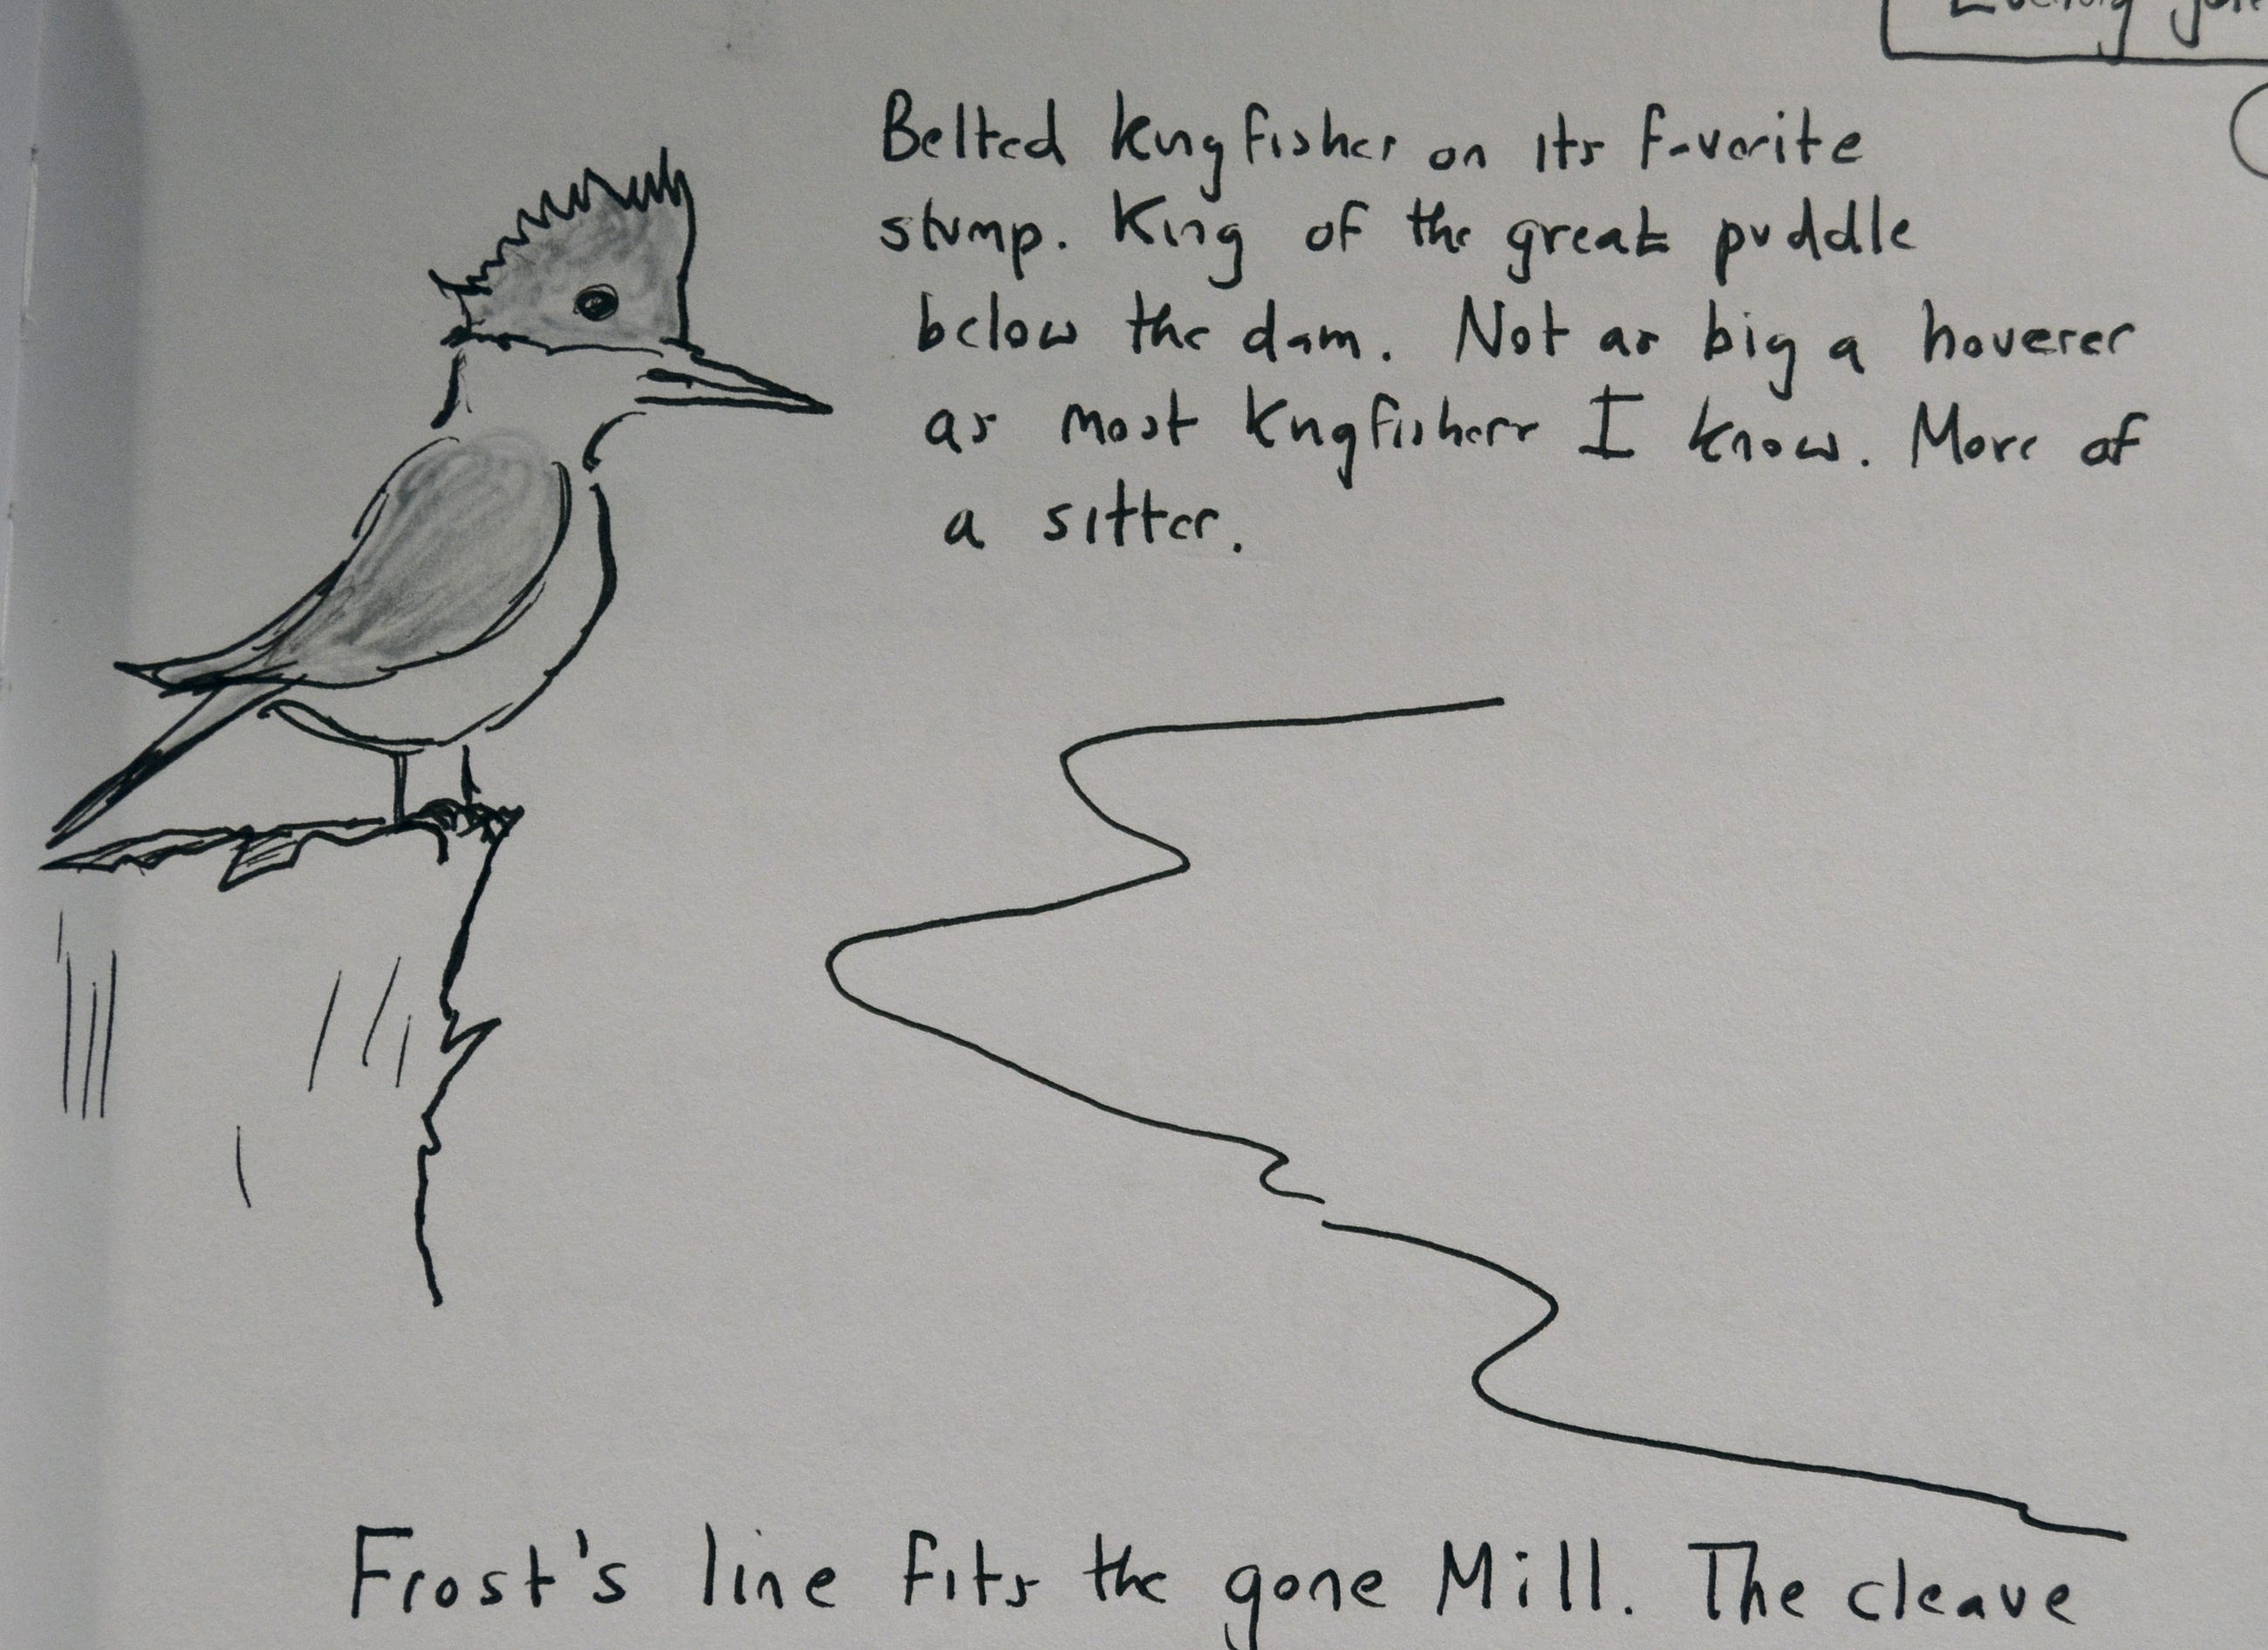 Evening
Belted Kingfisher on its favorite
stump. King of the great puddle
below the dam. Not as big a hoverer
as most Kingfishers I know. More of
a sitter.
Frost's line fits the gone Mill. The cleave